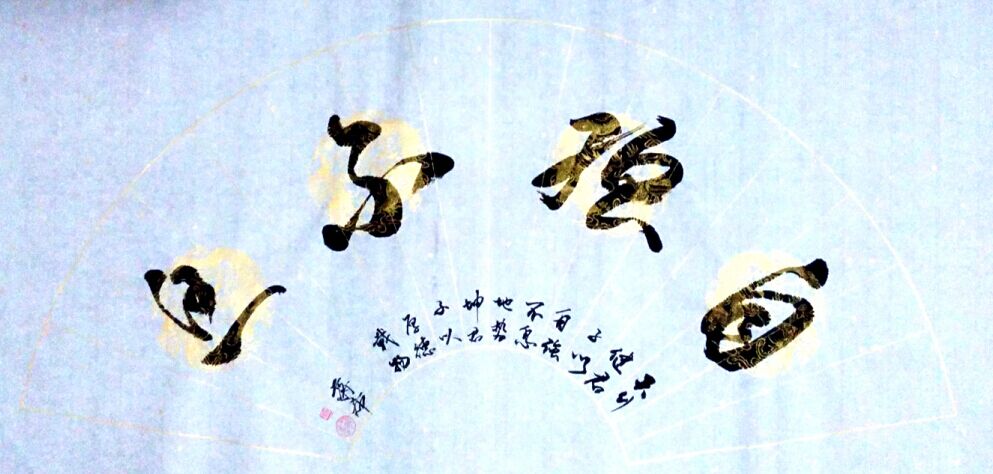 自強不息
天行
健君
子以
自強
不息
地勢
坤君
子以
厚德
載物